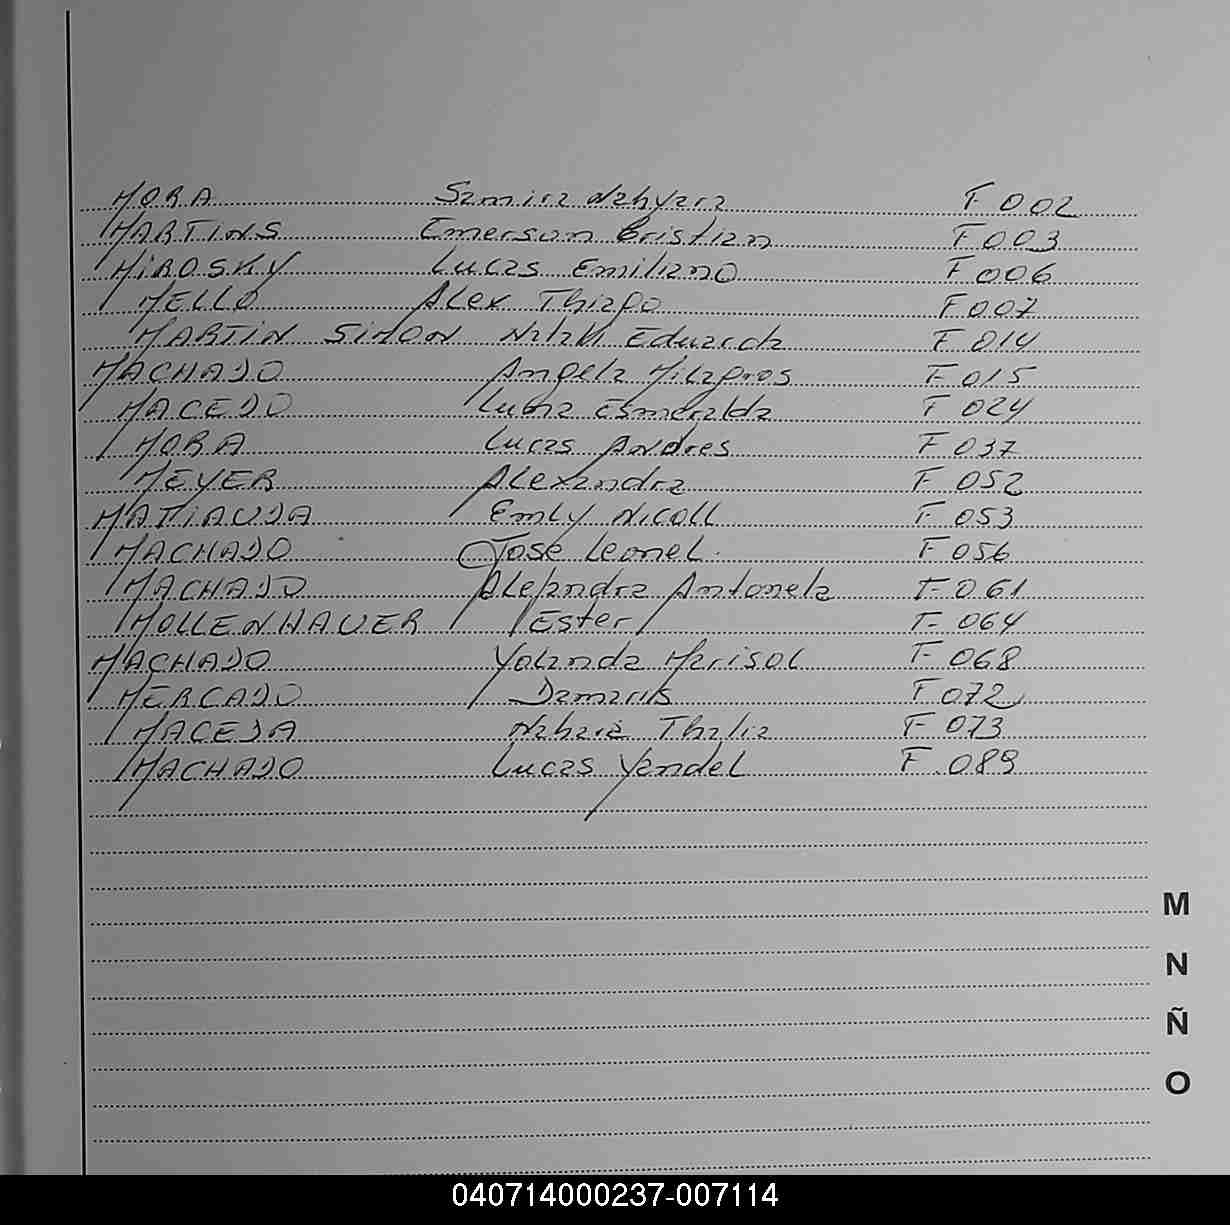 MORA Samira Nahyara F 002
MARTINS Emerson Cristian F 003
MIROSKY Lucas Emiliano F 006
MELLO Alex Thiago F 007
MARTIN SIMON Eduardo F 014
MACHADO Angela Milagros F 015
MACEDO Luana Esmeralda F 024
MORA Lucas Andres F 037
MEYER Alexandra F 052
MATIAUDA Emly Nicoll F 053
MACHADO Jose Leonel F 056
MACHADO Alejandra Antonela F 061
MOLLENHAUER Ester F 064
MACHADO Yolanda Marisol F 068
MERCADO Damaris F 072
MACEDA Thalia F 073
MACHADO Lucas Yandel F 089
M
N
Ñ
O
040714000237-007114